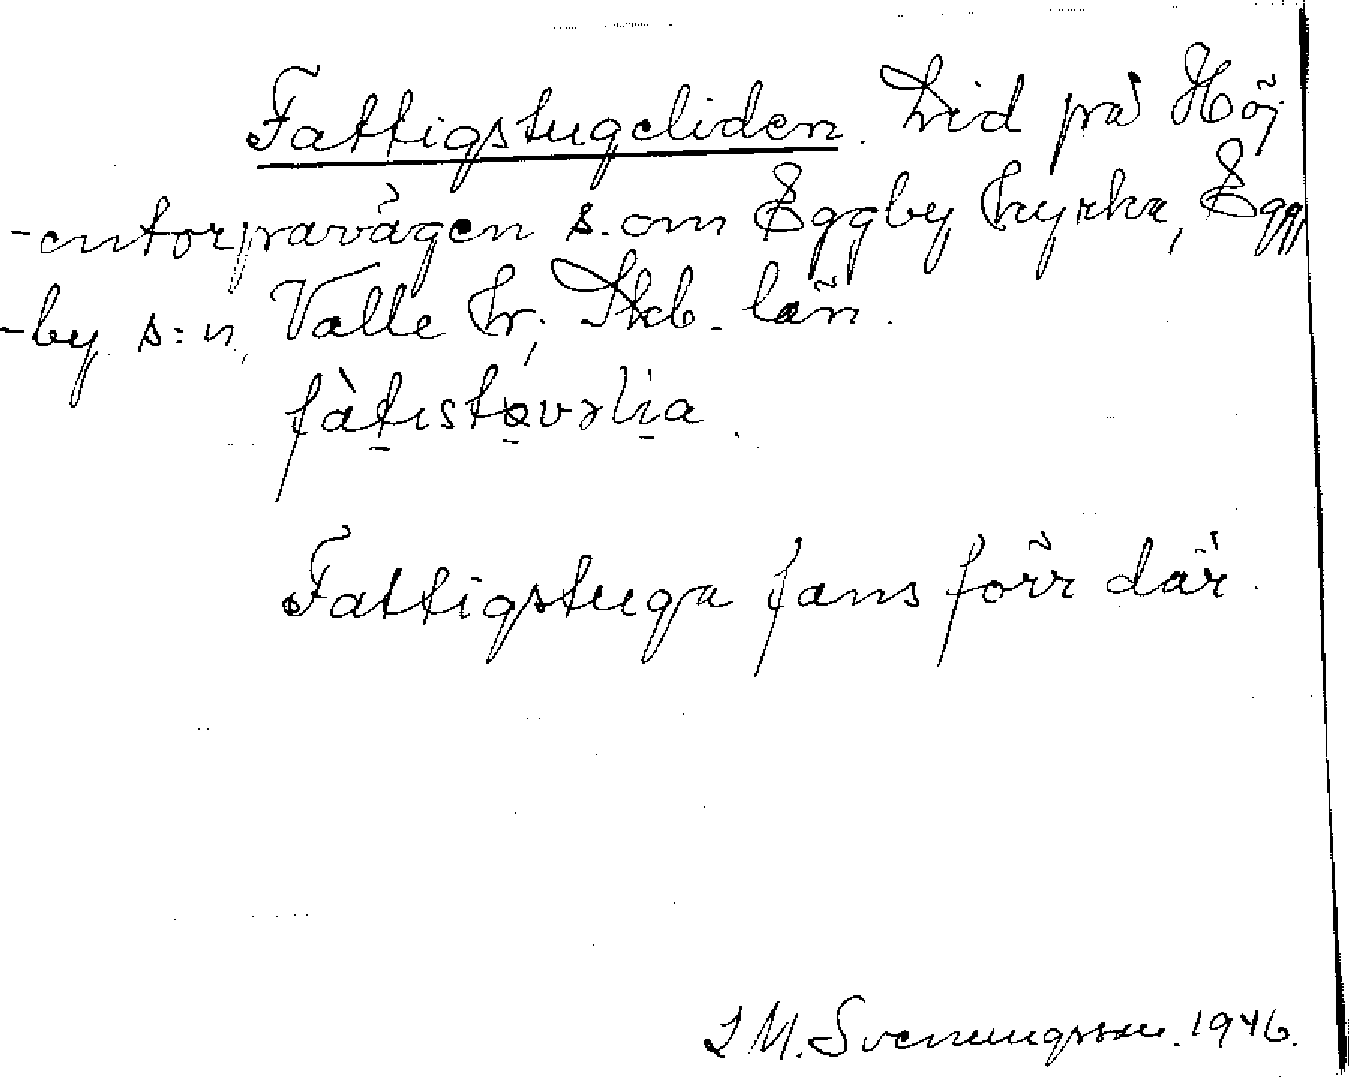 Fattigstugeliden. Lid på Höj
-entorpavägen s. om Eggby kyrka, Egg
-by s:n, Valle hr, Skb. län.
fàtistɷvəlia.
Fattigstuga fans förr där.
I M. Svenungsson. 1946.